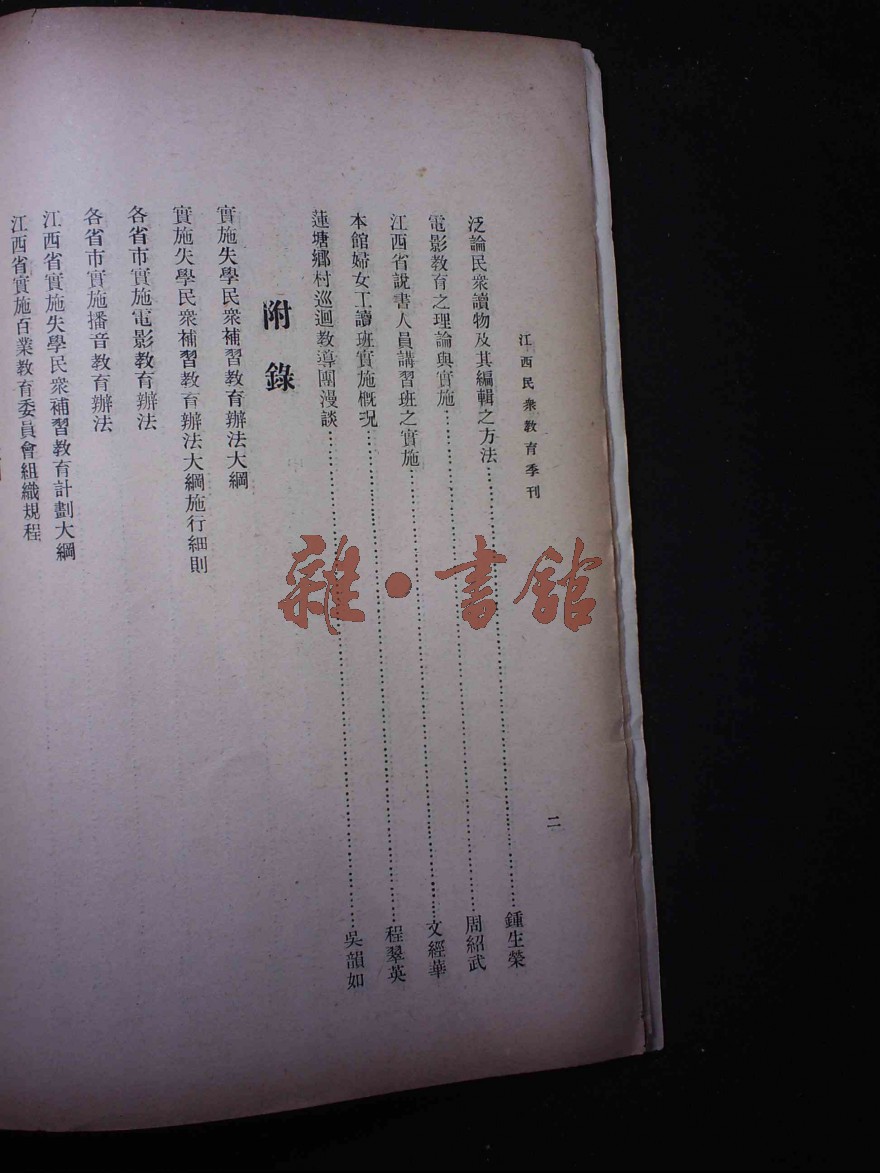 江西民衆教育季刊
二
泛論民衆讀物及其編輯之方法……鍾生榮
電影教育之理論與實施……周紹武
江西省說書人員講習班之實施……文經華
本館婦女工讀班實施概況……程翠英
蓮塘鄉村巡迴教導團漫談……吳韻如
附錄
實施失學民衆補習教育辦法大綱
實施失學民衆補習教育辦法大綱施行細則
各省市實施電影教育辦法
各省市實施播音教育辦法
江西省實施失學民衆補習教育計劃大綱
江西省實施百業教育委員會組織規程
雜·書館